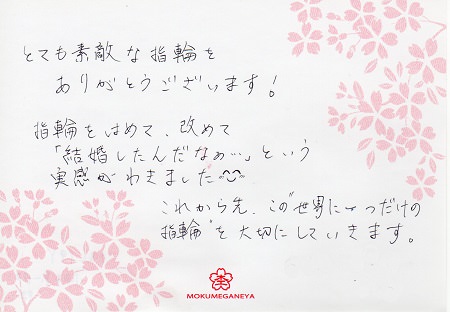 とても素敵な指輪を
ありがとうございます！
指輪をはめて、改めて
「結婚したんだなぁ…」という
実感がわきました^^
これから先、この"世界に一つだけの
指輪"を大切にしていきます。
MOKUMEGANEYA